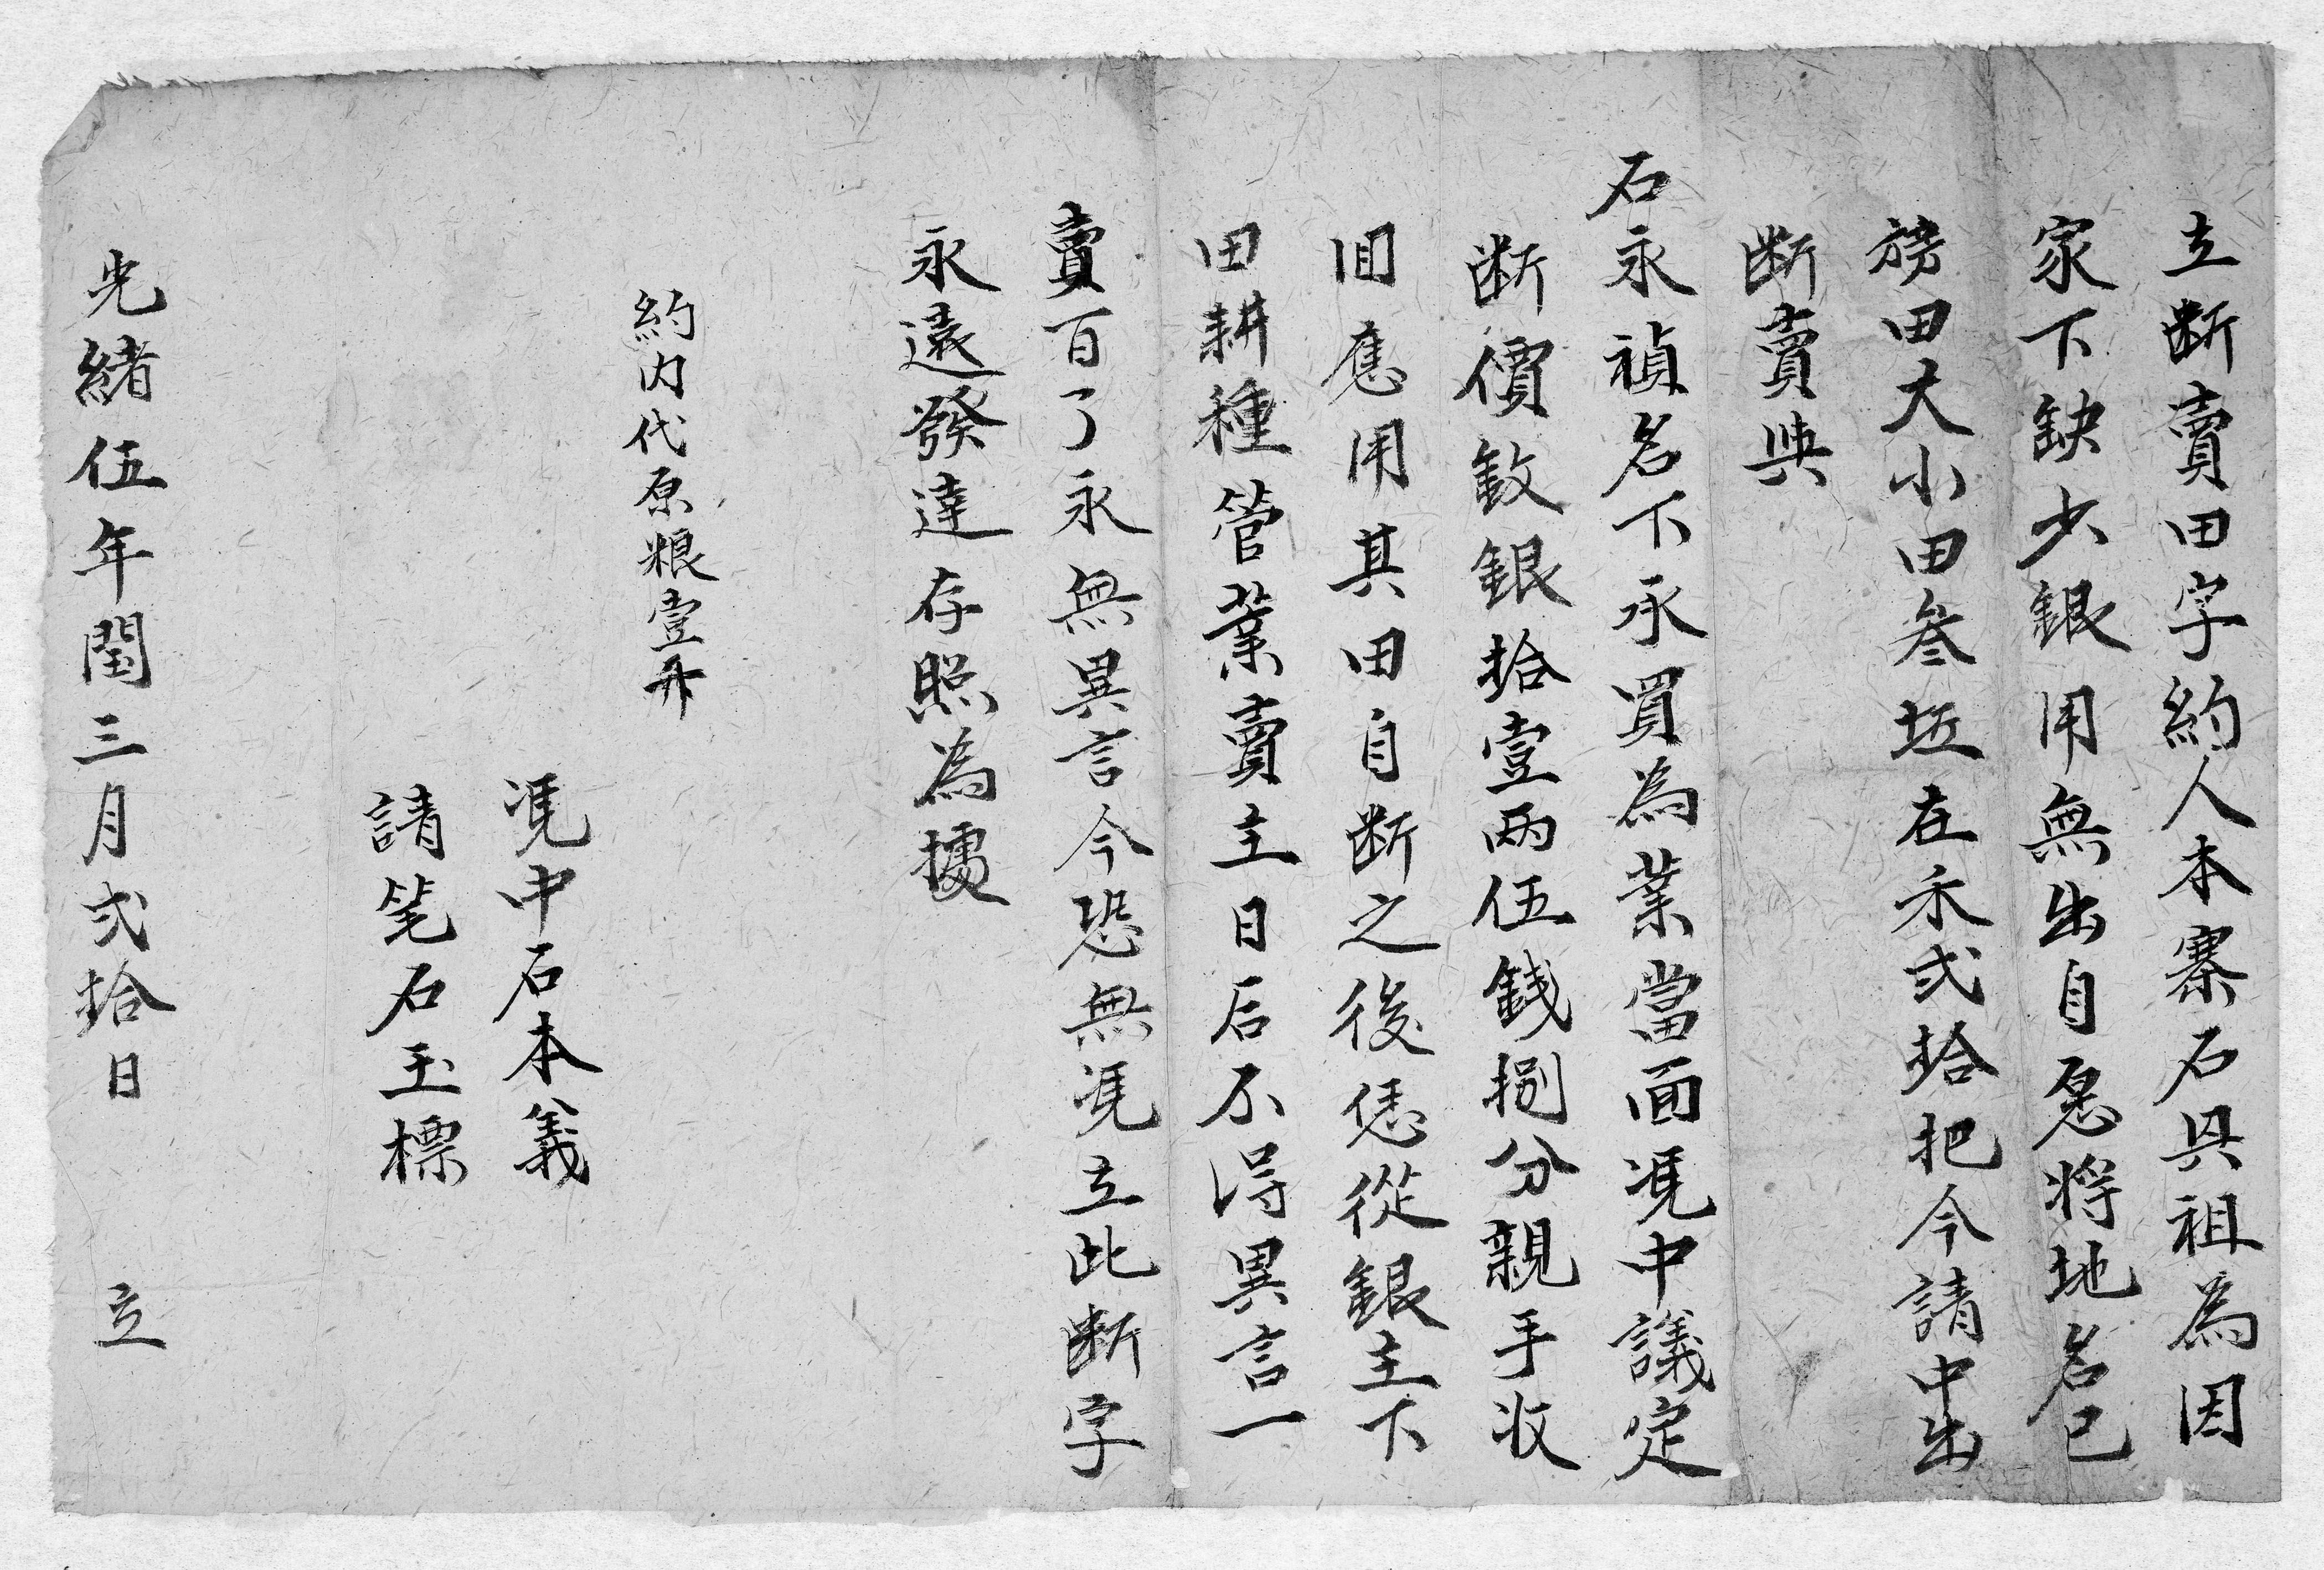 立断賣田字約人本寨石具祖為因
家下缺少銀用無出自愿將地名已
旁田大小田叁坵在禾弍拾把今請中出
断賣與
石永禎名下承買為業當面凴中議定
断價銀拾壹両伍錢捌分親手收
囬應用其田自断之後恁從銀主下
田耕種管業賣主日后不得異言一
賣百了永無異言今恐無凴立此断字
永遠發達存照為據
約内代原粮壹升
凴中石本義
請笔石玉標
光緒伍年閏三月弍拾日 立